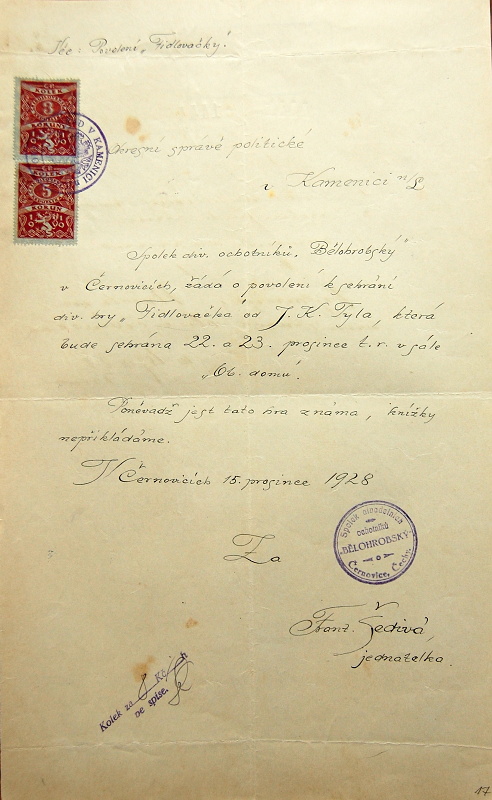 Věc: Povolení „Fidlovačky".
KOLEK
3
KORUNY
KOLEK
5
KORUN
V KAMENICI
Okresní správě politické
v Kamenici n/L
Spolek div. ochotníků „Bělohrobský"
v Černovicích, žádá o povolení k sehrání
div. hry „Fidlovačka" od J. K. Tyla, která
bude sehrána 22. a 23. prosince t. r. v sále
„Ob. domu".
Poněvadž jest tato hra známa, knížky
nepřikládáme.
V Černovicích 15. prosince 1928
Spolek divadelních
ochotníků
„BĚLOHROBSKÝ"
Černovice, Čechy.
Za
Frant. Šedivá,
jednatelka.
Kolek za 8 Kč h
ve spise.
17